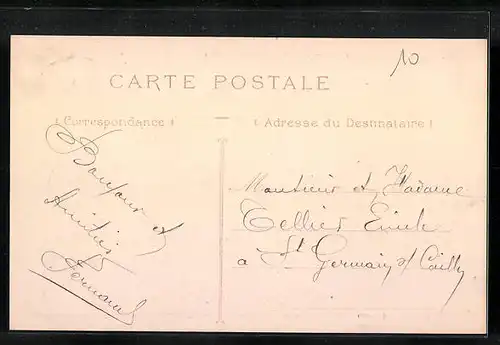 10
CARTE POSTALE
(Correspondance)
(Adresse du Destinataire)
Bonjour et
Amitiés
Fernand
Monsieur et Madame
Tellier Emile
a St Germain s/ Cailly